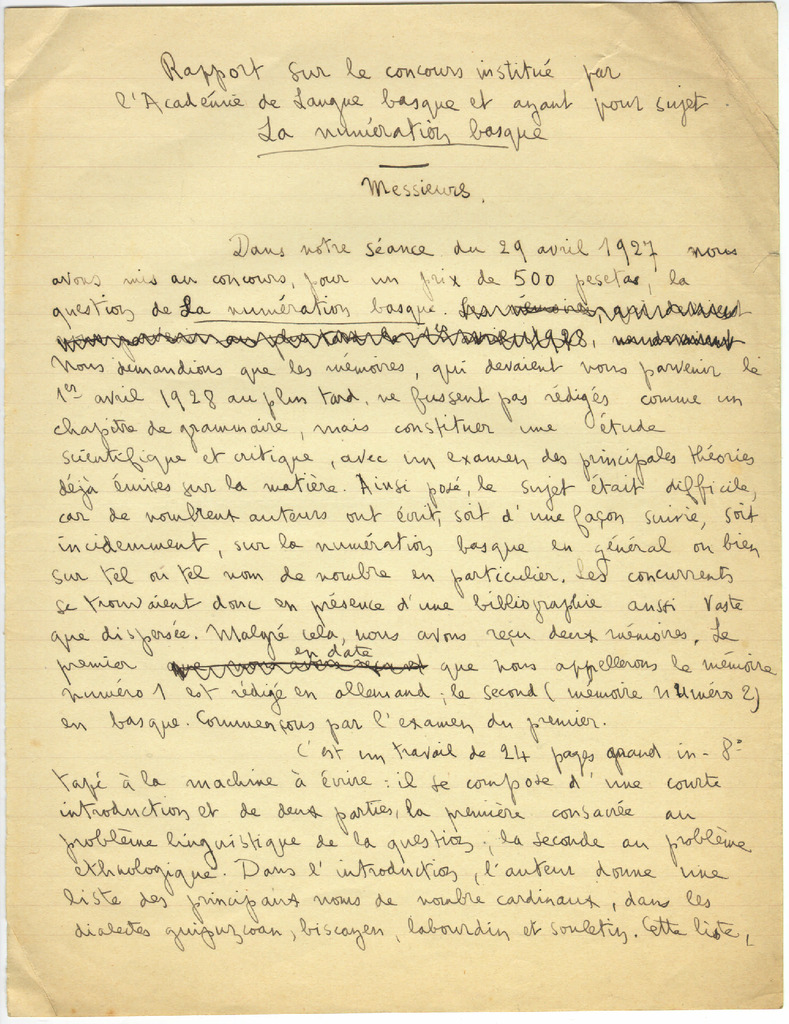 Rapport sur le concours institué par
l'Académie de Langue basque et ayant pour sujet
La numération basque
Messieurs.
Dans notre séance du 29 avril 1927 nous
avons mis au concours, pour un prix de 500 pesetas, la
question de La numération basque. Les mémoires, qui devaient
nous parvenir au plus tard le 1er avril 1928,
Nous demandions que les mémoires, qui devaient nous parvenir le
1er avril 1928 au plus tard, ne fussent pas rédigés comme un
chapitre de grammaire, mais constituer une étude
scientifique et critique, avec un examen des principales théories
déjà émises sur la matière. Ainsi posé, le sujet était difficile,
car de nombreux auteurs ont écrit, soit d'une façon suivie, soit
incidemment, sur la numération basque en général ou bien
sur tel ou tel nom de nombre en particulier. Les concurrents
se trouvaient donc en présence d'une bibliographie aussi vaste
que dispersée. Malgré cela, nous avons reçu deux mémoires. Le
premier en date que nous appellerons le mémoire
numéro 1 est rédigé en allemand; le second (mémoire numéro 2)
en basque. Commençons par l'examen du premier.
C'est un travail de 24 pages grand in-8°
tapé à la machine à écrire: il se compose d'une courte
introduction et de deux parties, la première consacrée au
problème linguistique de la question, la seconde au problème
ethnologique. Dans l'introduction, l'auteur donne une
liste des principaux noms de nombre cardinaux, dans les
dialectes guipuzcoan, biscayen, labourdin et souletin. Cette liste,